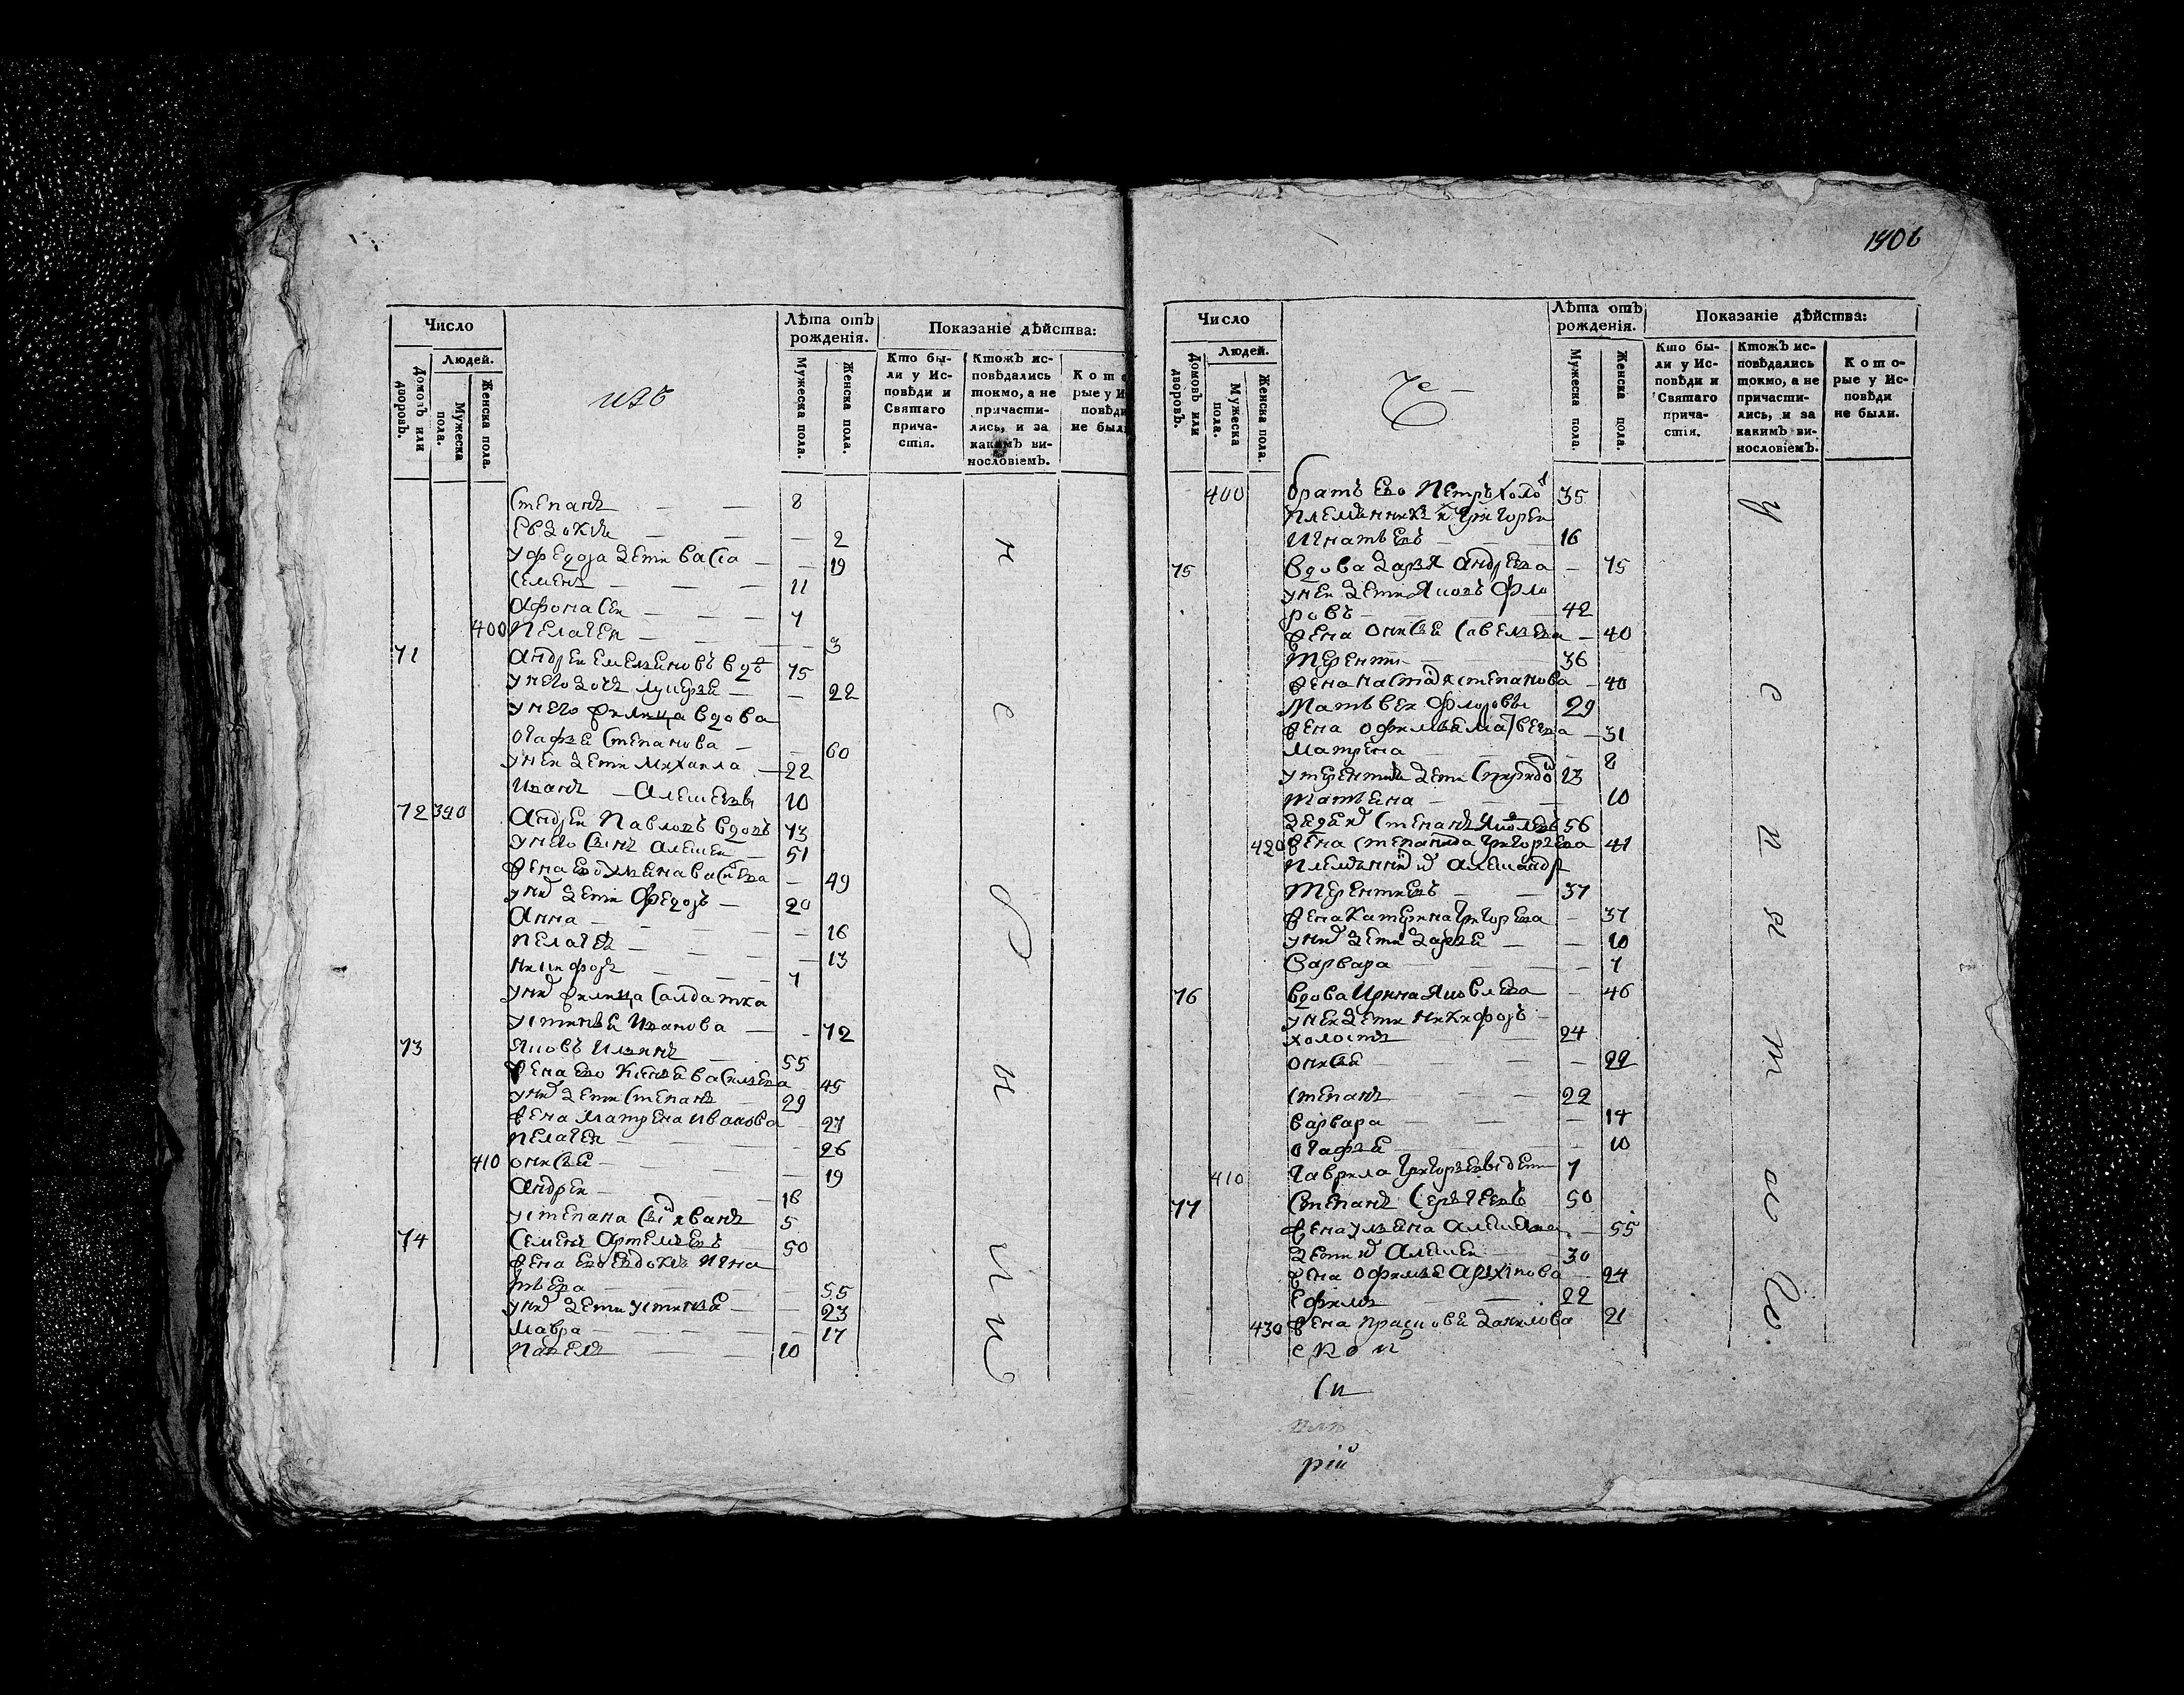 Число
Домовъ или дворовъ.
Людей.
Мужеска пола.
Женска пола.
изъ
Лѣта отъ рожденія.
Мужеска пола.
Женска пола.
Показаніе дѣйства:
Кто были у Исповѣди и Святаго причастія.
Ктожъ исповѣдались токмо, а не причастились, и за какимъ винословіемъ.
Степанъ 8
Евдокія 2
у Федора дети Васса 19
Семенъ 11
Афонасеи
400 Пелагея 3
71 Андреи Емельяновъ вдвъ 75
у него дочь Лукерья 22
у него вдова
Огафья Степанова 60
у неи дети Михаила 22
Иванъ Алексеевы 10
72 390 Андреи Павловъ вдовъ 73
у него сынъ Алексеи 51
жена ево 49
у них дети Федоръ 20
Анна 16
Пелагея 13
Никифоръ
у них солдатка
Устинья Иванова 72
73 Яковъ Ильинъ 55
жена ево Ксенья Васильева 45
у них дети Степанъ 29
жена Матрена Иванова 27
Пелагея 26
410 Онисья 19
Андреи 16
у Степана Иванъ 5
74 Семенъ Артемьевъ 50
жена ево Евдокия Игна
тьева 55
у них дети Устинья 23
Мавра 17
Павелъ 10
н
е
б
ы
ли
1406
Число
Домовъ или дворовъ.
Людей.
Мужеска пола.
Женска пола.
Лѣта отъ рожденія.
Мужеска пола.
Женска пола.
Показаніе дѣйства:
Кто были у Исповѣди и Святаго причастія.
Ктожъ исповѣдались токмо, а не причастились, и за какимъ винословіемъ.
Которые у Исповѣди не были.
400 братъ ево Петръ холо 35
племянникъ их Григореи
Игнатьевъ 16
75 вдова Дарья Андреева 75
у неи дети Яковъ Фло
ровъ 42
жена Онисья Савельева 40
Терентии 36
жена Настасья Степанова 40
Матвеи Флоровы 29
жена Офимья Матвеева 31
Матрена 8
у Терентия дети Спиридо 13
Татьяна 10
дядя их Степанъ Яковлевъ 56
420 жена Степанида Григорьева 41
племянник их Александръ
Терентиевъ 37
жена Катерина Григорева 37
у них дети Дарья 10
Варвара
76 вдова Ирина Яковлева 46
у неи дети Никифоръ
холостъ 24
Онисья 22
Степанъ 22
Варвара 14
Огафья 10
410 Гаврила Григорьевы дети
77 Степанъ Сергеевъ 50
жена Ульяна Алексеева 55
дети их Алексеи 30
жена Офимья Архипова 24
Ефимъ 22
430 жена Прасковья Данилова 21
скои
рій